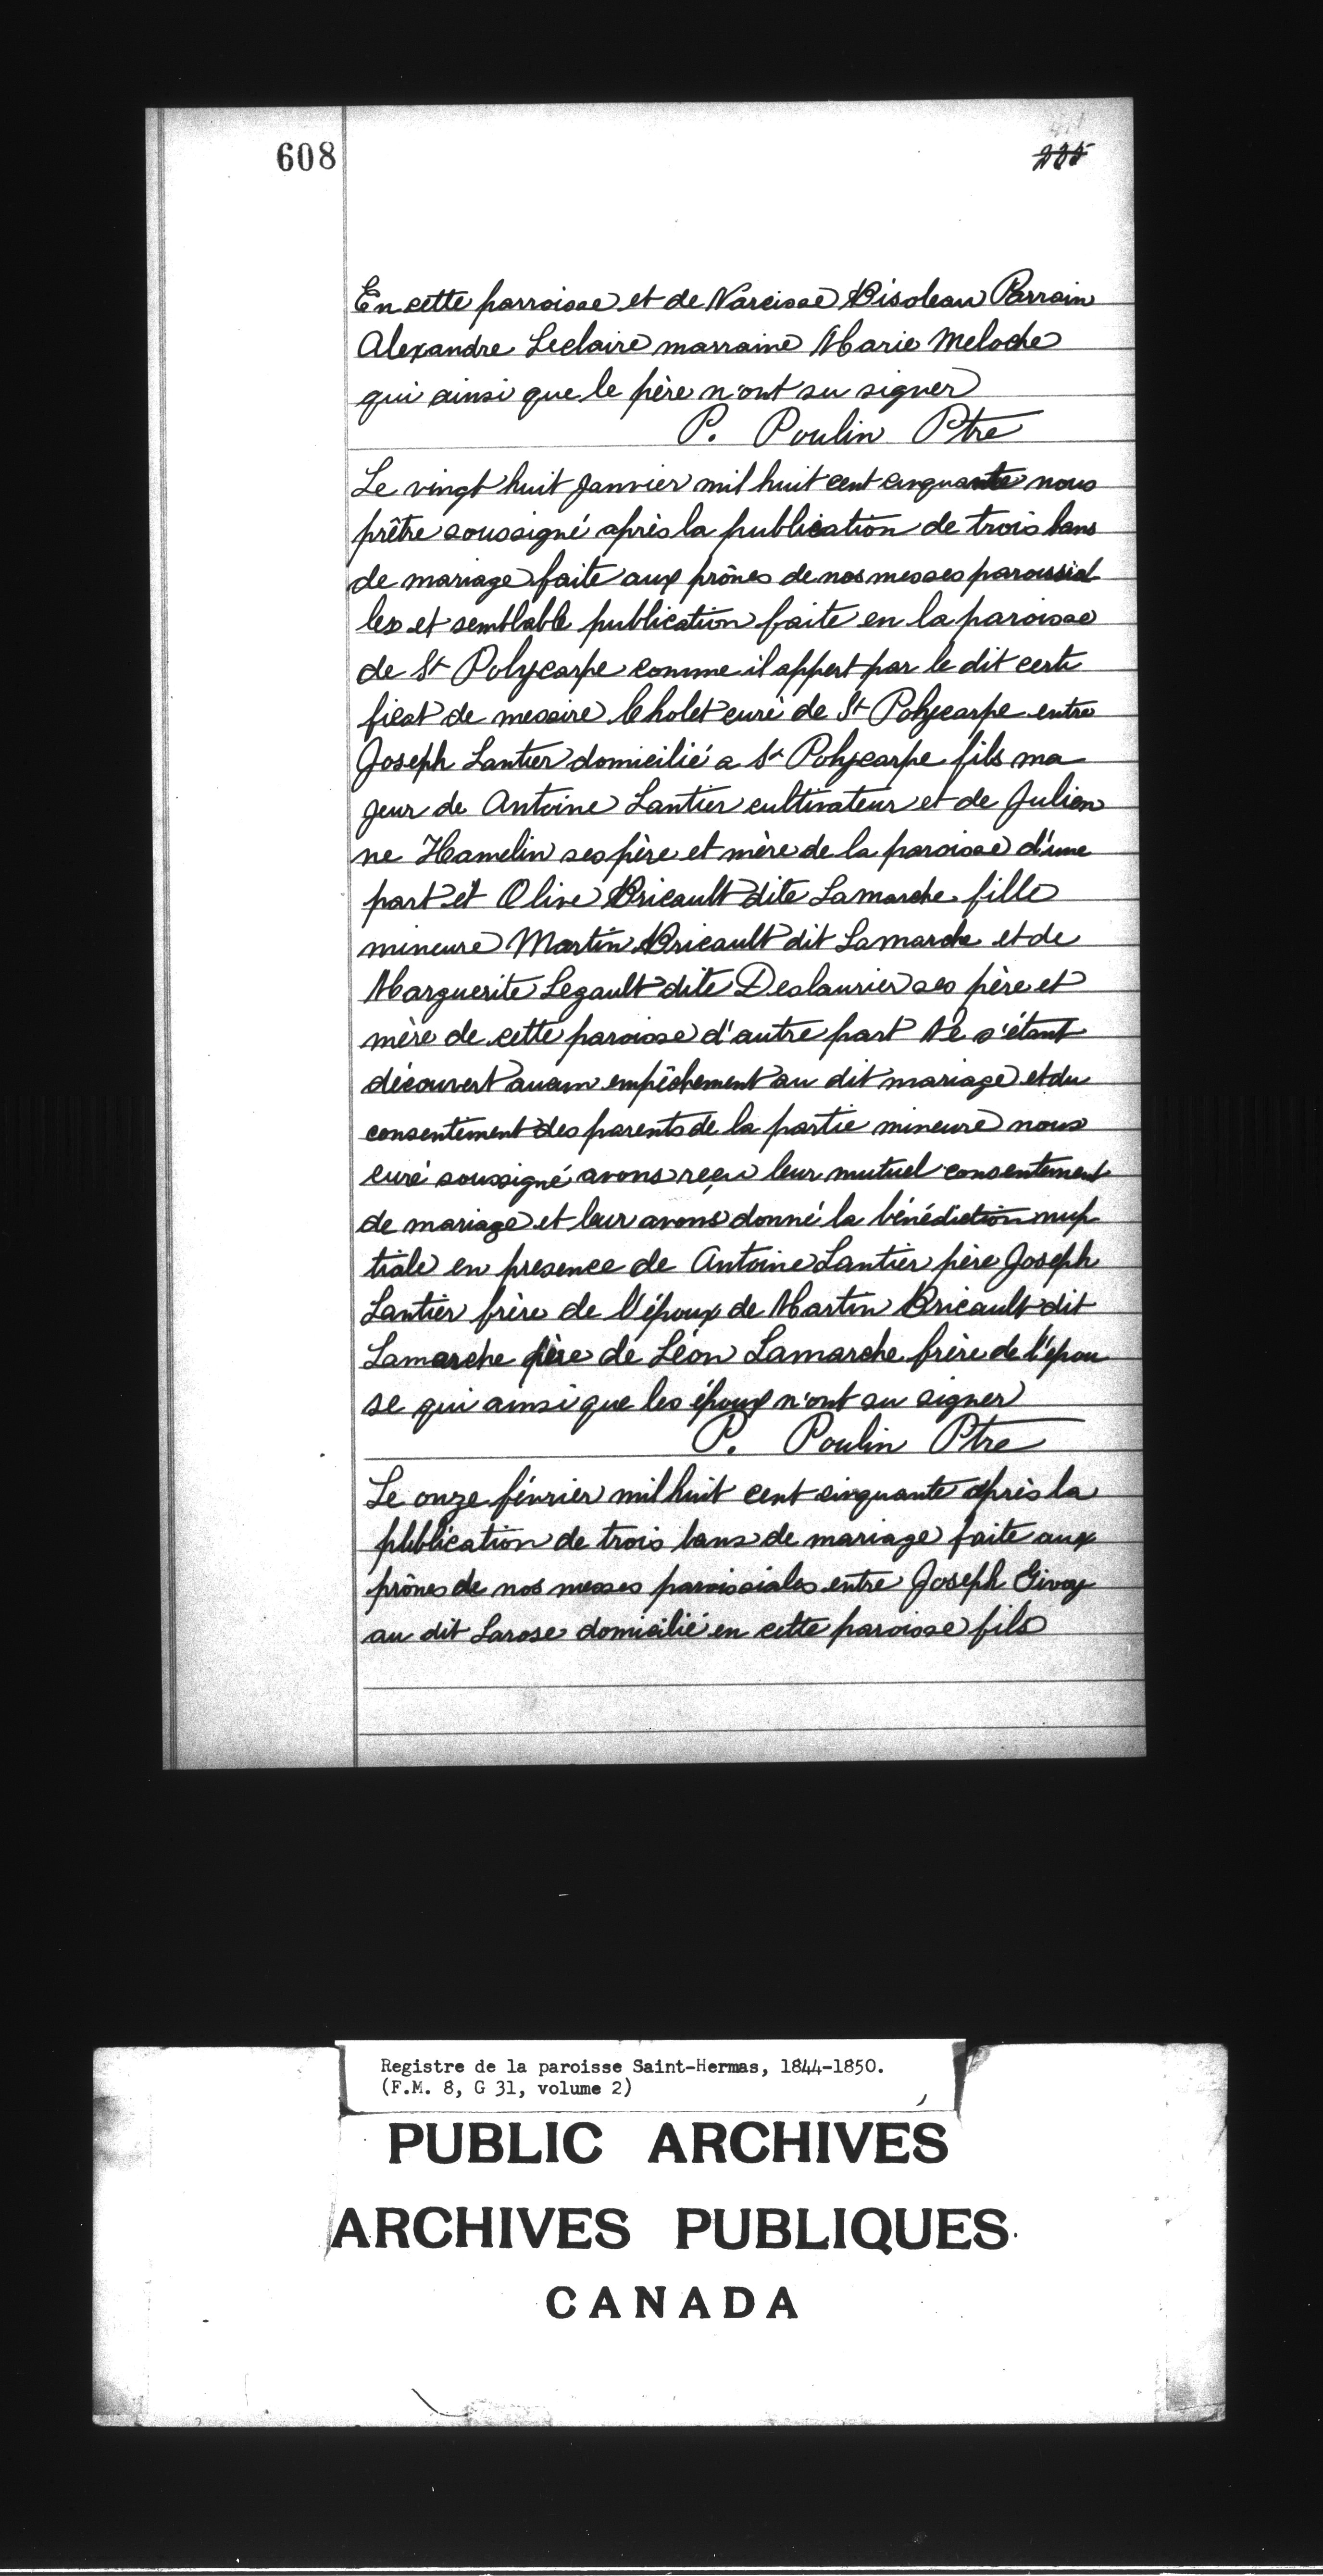 608
225
En cette parroisse et de Narcisse Bisoleau Parrain
Alexandre Leclaire marraine Marie Meloche
qui ainsi que le père n'ont su signer
P. Poulin Ptre
Le vingt huit Janvier mil huit cent cinquante nous
prêtre soussigné après la publication de trois bans
de mariage faite aux prônes de nos messes paroissial
les et semblable publication faite en la paroisse
de St Polycarpe comme il appert par le dit certi
ficat de messire Cholet curé de St Polycarpe entre
Joseph Lantier domicilié a St Polycarpe fils ma
jeur de Antoine Lantier cultivateur et de Julien
ne Hamelin ses père et mère de la paroisse d'une
part et Olive Bricault dite Lamarche fille
mineure Martin Bricault dit Lamarche et de
Marguerite Legault dite Deslaurier ses père et
mère de cette paroisse d'autre part Ne s'étant
découvert aucun empêchement au dit mariage et du
consentement des parents de la partie mineure nous
curé soussigné avons reçu leur mutuel consentement
de mariage et leur avons donné la bénédiction nup
tiale en presence de Antoine Lantier père Joseph
Lantier frère de l'époux de Martin Bricault dit
Lamarche père de Léon Lamarche frère de l'épou
se qui ainsi que les époux n'ont su signer
P. Poulin Ptre
Le onze février mil huit cent cinquante après la
publication de trois bans de mariage faite aux
prônes de nos messes paroissiales entre Joseph Givoy
au dit Larose domicilié en cette paroisse fils
Registre de la paroisse Saint-Hermas, 1844-1850.
(F.M. 8, G 31, volume 2)
PUBLIC ARCHIVES
ARCHIVES PUBLIQUES
CANADA